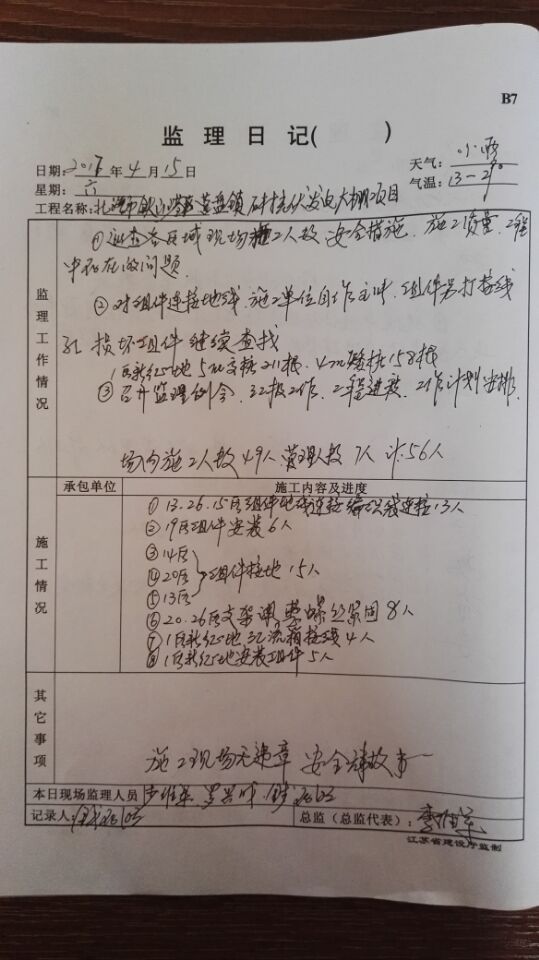 B7
监 理 日 记( )
日期: 2017 年 4 月 15 日
天气: 小雨
星期: 六
气温: 13-29°
工程名称: 镇 光伏发电大棚项目
监理工作情况
① 巡查各区域现场施工人数 安全措施 施工质量 工程
中存在的问题.
② 对组件连接地线 施工单位自作主冲 组件另打接线
孔 损坏组件 继续查找
1区新征地 5m支桩211根 4m 桩158根
③ 召开监理例会 工作 工程进度 工作计划安排
场内施工人数49人 管理人员 7人 计56人
施工情况
承包单位
施工内容及进度
① 13.26.15区组件地线连接 编织线连接13人
② 19区组件安装6人
③ 14区
④ 20区 组件接地 15人
⑤ 13区
⑥ 20.26区支架调整 螺丝紧固 8人
⑦ 1区新征地 汇流箱接线 4人
⑧ 1区新征地安装组件 5人
其它事项
施工现场无违章 安全 故事
本日现场监理人员
记录人:
总监（总监代表）:
江苏省建设厅监制